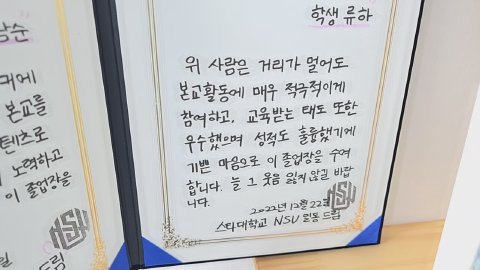 남순
커에
본교를
텐츠로
노력하고
이 졸업장을
드림
학생 류하
위 사람은 거리가 멀어도
본교활동에 매우 적극적이게
참여하고, 교육받는 태도 또한
우수했으며 성적도 훌륭했기에
기쁜 마음으로 이 졸업장을 수여
합니다. 늘 그 웃음 잃지 않길 바랍
니다.
2022년 12월 22일
스타대학교 NSU 일동 드림
NSU